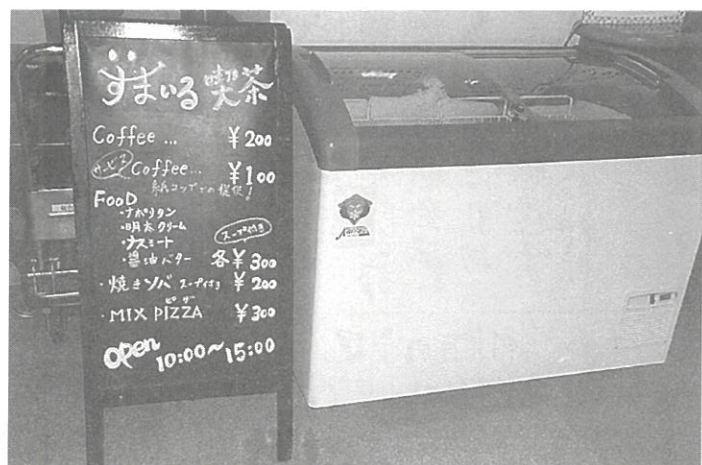 すまいる 喫茶
Coffee ... ¥200
サービス Coffee... ¥100
紙コップでの提供!
FooD
・ナポリタン
・明太クリーム
・ナスミート
スープ付き
・醤油バター 各¥300
・焼きソバ スープ付き ¥200
ピザ
・MIX PIZZA ¥300
OPen 10:00~15:00